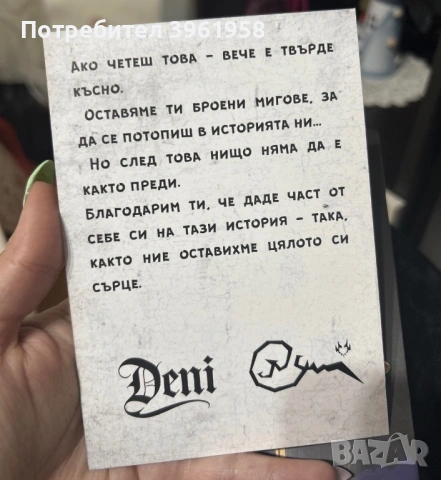 Потребител 3961958
Ако четеш това – вече е твърде
късно.
Оставяме ти броени мигове, за
да се потопиш в историята ни...
Но след това нищо няма да е
както преди.
Благодарим ти, че даде част от
себе си на тази история – така,
както ние оставихме цялото си
сърце.
Deni
BAZAR